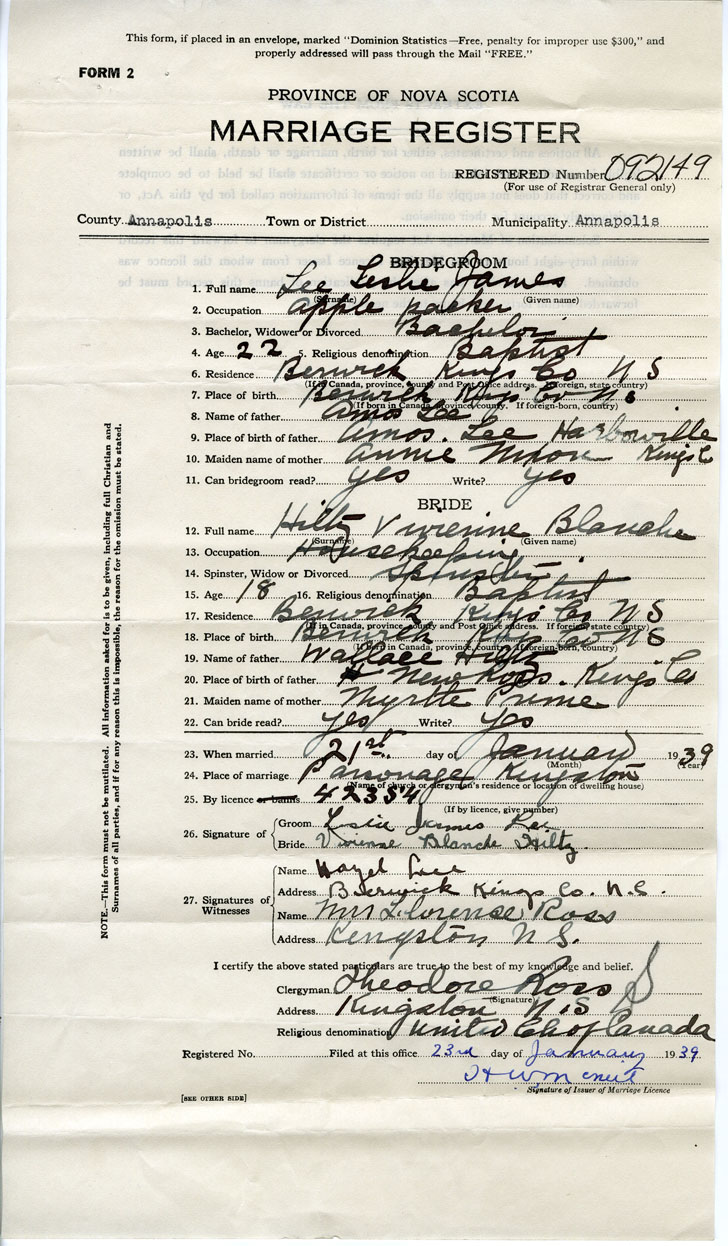 This form, if placed in an envelope, marked "Dominion Statistics—Free, penalty for improper use $300," and
properly addressed will pass through the Mail "FREE."
FORM 2
PROVINCE OF NOVA SCOTIA
MARRIAGE REGISTER
REGISTERED Number 092149
(For use of Registrar General only)
County Annapolis Town or District Municipality Annapolis
BRIDEGROOM
1. Full name Lee Leslie James
(Surname) (Given name)
2. Occupation apple packer
3. Bachelor, Widower or Divorced Bachelor
4. Age 22 5. Religious denomination Baptist
6. Residence Berwick Kings Co N S
(If in Canada, province, county and Post Office address. If foreign, state country)
7. Place of birth Berwick Kings Co N S
(If born in Canada, province, county. If foreign-born, country)
8. Name of father Amos Lee
9. Place of birth of father Amos. Lee Harbourville
10. Maiden name of mother Annie Nixon Kings Co
11. Can bridegroom read? yes Write? yes
BRIDE
12. Full name Hiltz Vivienne Blanche
(Surname) (Given name)
13. Occupation Housekeeping
14. Spinster, Widow or Divorced Spinster
15. Age 18 16. Religious denomination Baptist
17. Residence Berwick Kings Co N S
(If in Canada, province, county and Post Office address. If foreign state country)
18. Place of birth Berwick Kings Co N S
(If born in Canada, province, county. If foreign-born, country)
19. Name of father Wallace Hiltz
20. Place of birth of father New Ross. Kings Co
21. Maiden name of mother Myrtle Prime
22. Can bride read? yes Write? yes
23. When married 21st day of January 1939
(Month) (Year)
24. Place of marriage Parsonage Kingston
(Name of church or clergyman's residence or location of dwelling house)
25. By licence or banns 42354
(If by licence, give number)
26. Signature of Groom Leslie James Lee
Bride Vivienne Blanche Hiltz
27. Signatures of Witnesses
Name Hazel Lee
Address Berwick Kings Co. N.S.
Name Mrs Florence Ross
Address Kingston N S.
I certify the above stated particulars are true to the best of my knowledge and belief.
Clergyman Theodore Ross
(Signature)
Address Kingston N.S
Religious denomination United Ch of Canada
Registered No. Filed at this office 23rd day of January 1939.
Signature of Issuer of Marriage Licence
[SEE OTHER SIDE]
NOTE.—This form must not be mutilated. All information asked for is to be given, including full Christian and
Surnames of all parties, and if for any reason this is impossible, the reason for the omission must be stated.